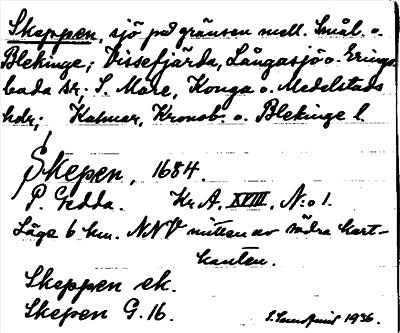 Skeppen, sjö på gränsen mell. Smål. o.
Blekinge; Vissefjärda, Långasjö o. Erings-
boda sr. S. Möre, Konga o. Medelstads
hdr; Kalmar, Kronob. o. Blekinge l.
Skepen, 1684.
P. Gedda. Kr. A. XVIII, N:o 1.
Läge 6 km. NNV mitten av södra kart-
kanten.
Skeppen ek.
Skepen G. 16.
1936.